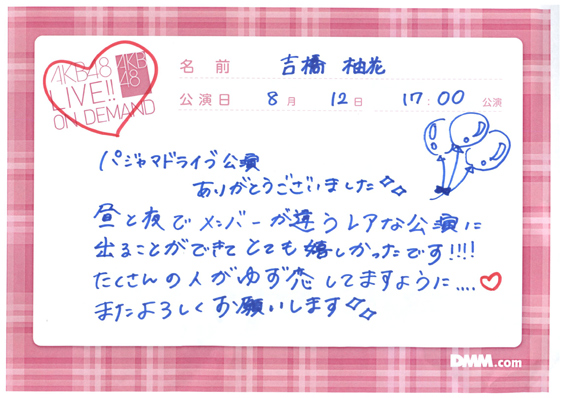 AKB48
LIVE!!
ON DEMAND
AKB
48
名前 吉橋 柚花
公演日 8月 12日 17:00 公演
パジャマドライブ公演
ありがとうございました
昼と夜でメンバーが違うレアな公演に
出ることができてとても嬉しかったです!!!!
たくさんの人がゆず恋してますように....
またよろしくお願いします
DMM.com